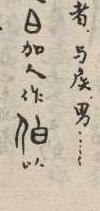 者，与侯、男……
曰加人作伯以